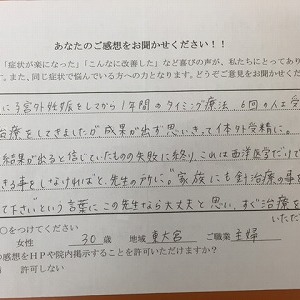 あなたのご感想をお聞かせください！！
「症状が楽になった」「こんなに改善した」など喜びの声が、私たちにとってあり
す。また、同じ症状で悩んでいる方への力となります。どうぞご意見をお聞かせくださ
に子宮外妊娠をしてから1年間のタイミング療法、6回の人工受
治療をしてきましたが成果が出ず思いきって体外受精に。
結果が出ると信じていたものの失敗に終り、これは西洋医学だけで
きる事をしなければと、先生の所に。“家族にも針治療の事を
て下さいという言葉にこの先生なら大丈夫と思い、すぐ治療を
いただ
〇をつけてください
女性 30歳 地域 東大宮 ご職業 主婦
の感想をＨＰや院内掲示することを許可いただけますか？
許可しない